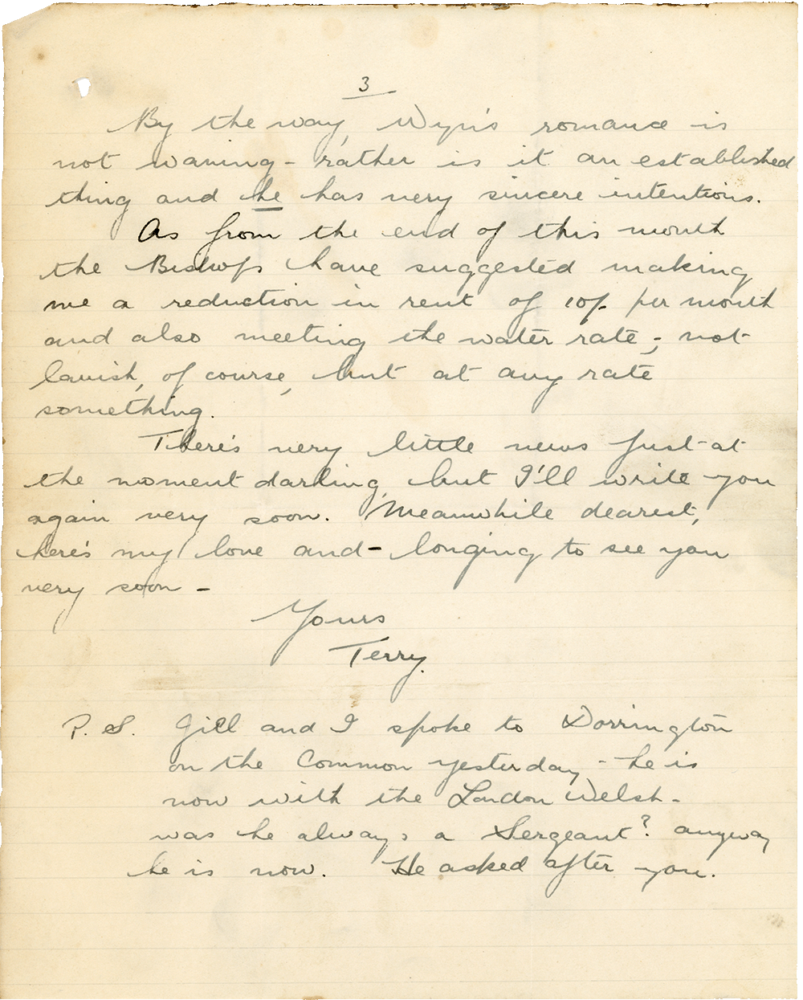 3
By the way, Wyn's romance is
not waning - rather is it an established
thing and he has very sincere intentions.
As from the end of this month
the Bishops have suggested making
me a reduction in rent of 10/- per month
and also meeting the water rate; not
lavish, of course, but at any rate
something.
There's very little news just at
the moment darling, but I'll write you
again very soon. Meanwhile dearest,
here's my love and - longing to see you
very soon -
Yours
Terry.
P.S. Gill and I spoke to Dorrington
on the Common yesterday - he is
now with the London Welsh -
was he always a Sergeant? anyway
he is now. He asked after you.